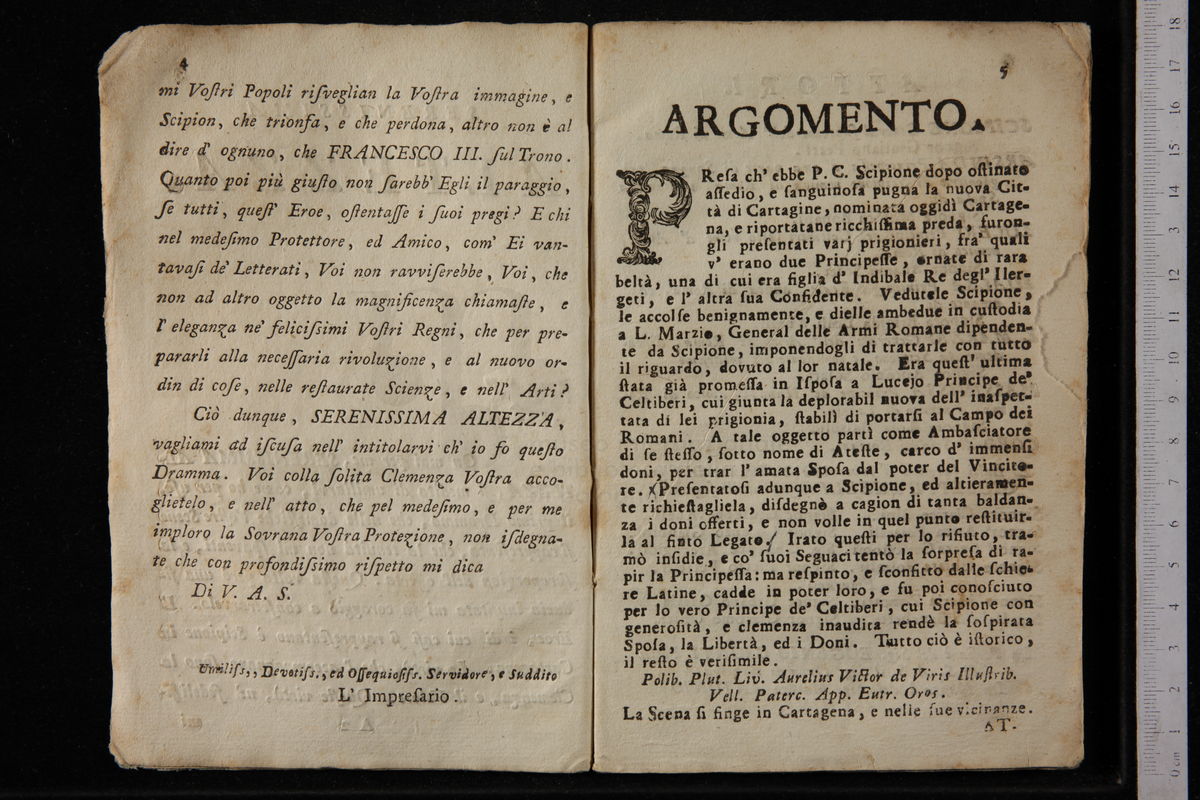 4
mi Voſtri Popoli riſveglian la Voſtra immagine, e
Scipion, che trionfa, e che perdona, altro non è al
dire d' ognuno, che FRANCESCO III. ſul Trono.
Quanto poi più giuſto non ſarebb' Egli il paraggio,
ſe tutti, queſt' Eroe, oſtentaſſe i ſuoi pregi? E chi
nel medeſimo Protettore, ed Amico, com' Ei van-
tavaſi de' Letterati, Voi non ravviſerebbe, Voi, che
non ad altro oggetto la magnificenza chiamaſte, e
l' eleganza ne' feliciſsimi Voſtri Regni, che per pre-
pararli alla neceſſaria rivoluzione, e al nuovo or-
din di coſe, nelle reſtaurate Scienze, e nell' Arti?
Ciò dunque, SERENISSIMA ALTEZZA,
vagliami ad iſcuſa nell' intitolarvi ch' io fo queſto
Dramma. Voi colla ſolita Clemenza Voſtra acco-
glietelo, e nell' atto, che pel medeſimo, e per me
imploro la Sovrana Voſtra Protezione, non iſdegna-
te che con profondiſsimo riſpetto mi dica
Di V. A. S.
Umiliſs,, Devotiſs., ed Oſſequioſiſs. Servidore, e Suddito
L' Impreſario.
5
ARGOMENTO.
PReſa ch' ebbe P. C. Scipione dopo oſtinato
aſſedio, e ſanguinoſa pugna la nuova Cit-
tà di Cartagine, nominata oggidì Cartage-
na, e riportatane ricchiſſima preda, furon-
gli preſentati varj prigionieri, fra' quali
v' erano due Principeſſe, ornate di rara
beltà, una di cui era figlia d' Indibale Re degl' Iler-
geti, e l' altra ſua Confidente. Vedutele Scipione,
le accolſe benignamente, e dielle ambedue in cuſtodia
a L. Marzio, General delle Armi Romane dipenden-
te da Scipione, imponendogli di trattarle con tutto
il riguardo, dovuto al lor natale. Era queſt' ultima
ſtata già promeſſa in Iſpoſa a Lucejo Principe de'
Celtiberi, cui giunta la deplorabil nuova dell' inaſpet-
tata di lei prigionia, ſtabilì di portarſi al Campo dei
Romani. A tale oggetto partì come Ambaſciatore
di ſe ſteſſo, ſotto nome di Ateſte, carco d' immenſi
doni, per trar l' amata Spoſa dal poter del Vincito-
re. Preſentatoſi adunque a Scipione, ed altieramen-
te richieſtagliela, diſdegnò a cagion di tanta baldan-
za i doni offerti, e non volle in quel punto reſtituir-
la al finto Legato. Irato queſti per lo rifiuto, tra-
mò inſidie, e co' ſuoi Seguaci tentò la ſorpreſa di ra-
pir la Principeſſa: ma reſpinto, e ſconfitto dalle ſchie-
re Latine, cadde in poter loro, e fu poi conoſciuto
per lo vero Principe de' Celtiberi, cui Scipione con
generoſità, e clemenza inaudita rendè la ſoſpirata
Spoſa, la Libertà, ed i Doni. Tutto ciò è iſtorico,
il reſto è veriſimile.
Polib. Plut. Liv. Aurelius Victor de Viris Illuſtrib.
Vell. Paterc. App. Eutr. Oros.
La Scena ſi finge in Cartagena, e nelle ſue vicinanze.
AT-
0 cm 1 2 3 4 5 6 7 8 9 10 11 12 13 14 15 16 17 18